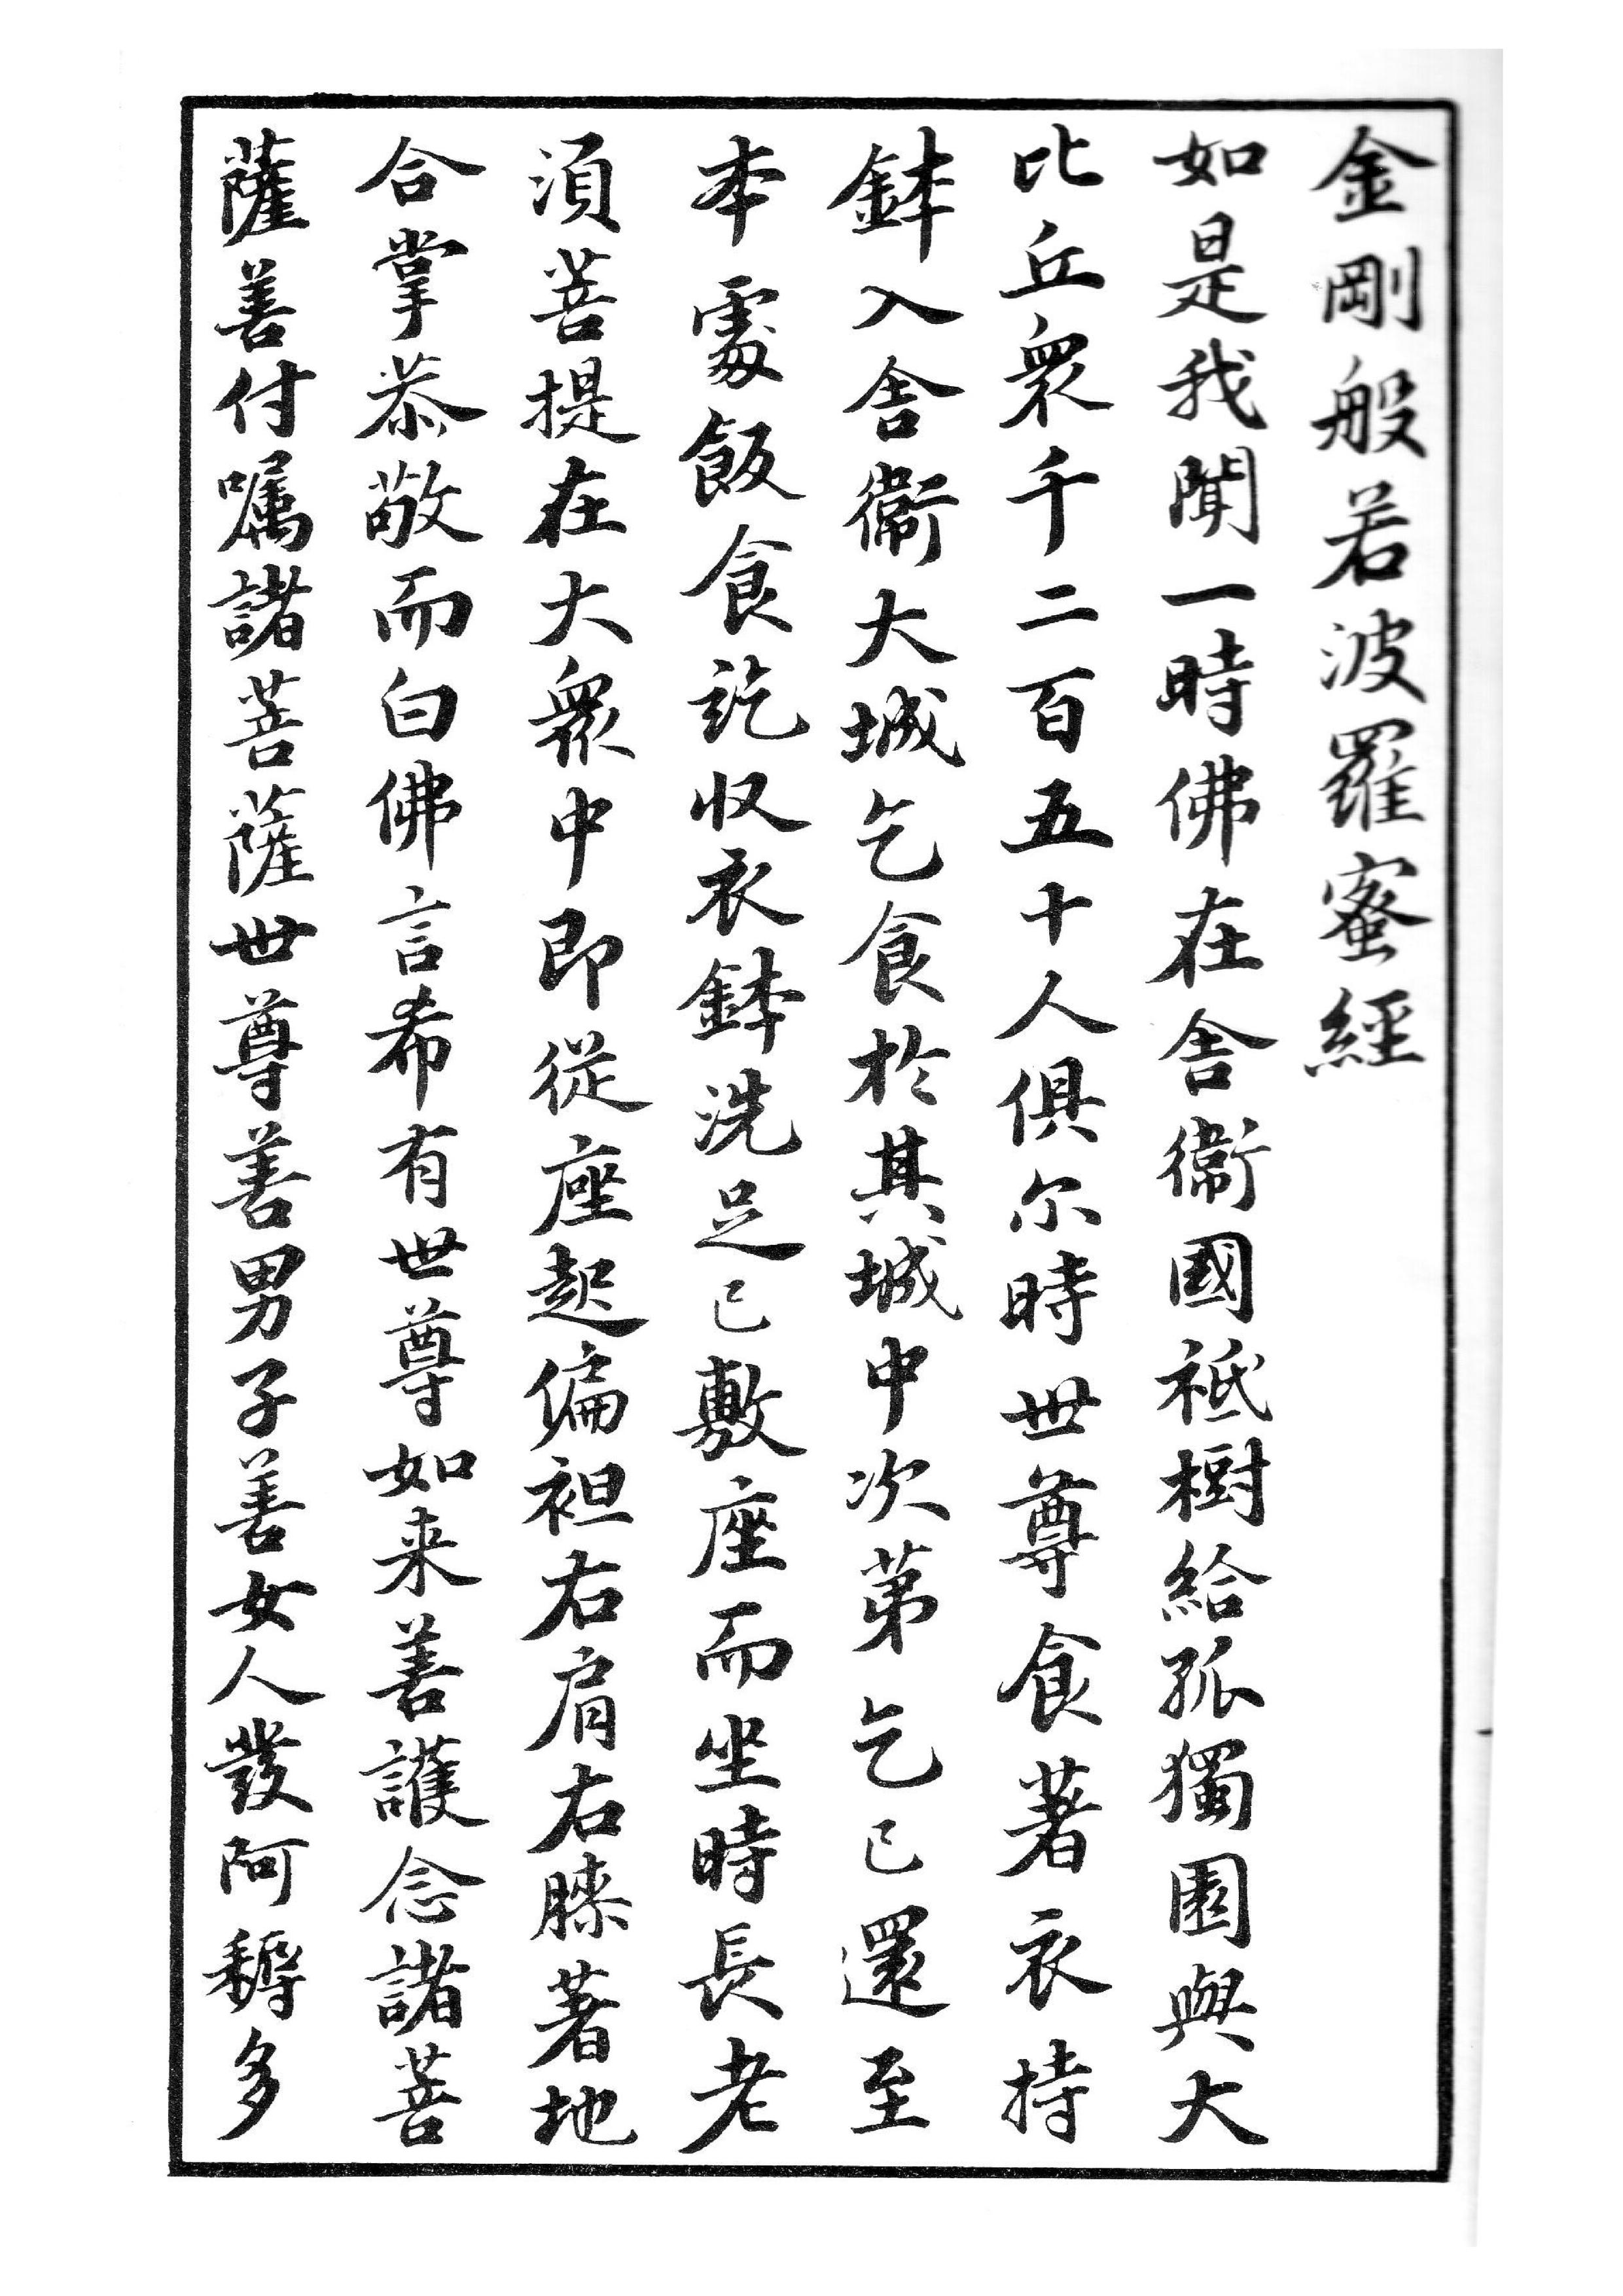 金剛般若波羅蜜經
如是我聞一時佛在舍衛國祇樹給孤獨園與大
比丘衆千二百五十人俱尔時世尊食著衣持
鉢入舍衛大城乞食於其城中次第乞已還至
本處飯食訖収衣鉢洗足已敷座而坐時長老
湏菩提在大衆中即從座起偏袒右肩右膝著地
合掌恭敬而白佛言希有世尊如来善護念諸菩
薩善付嘱諸菩薩世尊善男子善女人發阿耨多